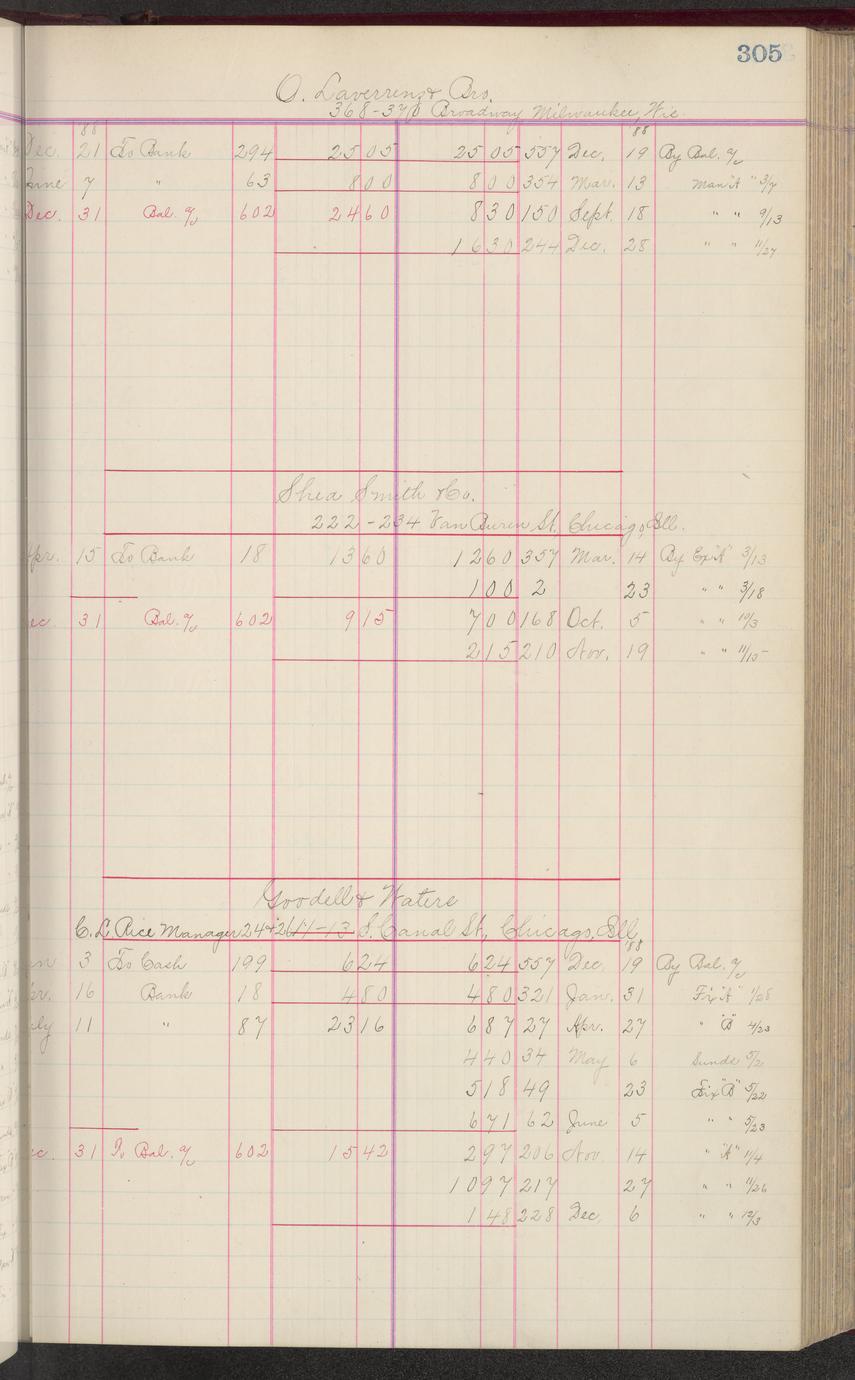 305
O. Laverrenz & Bros.
368-370 Broadway Milwaukee, Wis.
88 '88
Dec. 21 To Bank 294 25 05 25 05 557 Dec. 19 By Bal. a/c
June 7 " 63 8 00 8 00 354 Mar. 13 Man "A" 3/7
Dec. 31 Bal. a/c 602 24 60 8 30 150 Sept. 18 " " 9/13
16 30 244 Dec. 28 " " 11/27
Shea Smith & Co.
222-234 Van Buren St, Chicago, Ill.
Apr. 15 To Bank 18 13 60 12 60 357 Mar. 14 By Ex "A" 3/13
1 00 2 23 " " 3/18
Dec. 31 Bal. a/c 602 9 15 7 00 168 Oct. 5 " " 10/3
2 15 210 Nov. 19 " " 11/15
Goodell & Waters
C. L. Rice Manager 24 & 26 11-13 S. Canal St., Chicago, Ill.
'88
3 To Cash 199 6 24 6 24 557 Dec. 19 By Bal. a/c
16 Bank 18 4 80 4 80 321 Jan. 31 Fix "A" 1/28
July 11 " 87 23 16 6 87 27 Apr. 27 " "B" 4/23
4 40 34 May 6 Sunds 5/2
5 18 49 23 Fix "B" 5/22
6 71 62 June 5 " " 5/23
Dec. 31 To Bal. a/c 602 15 42 2 97 206 Nov. 14 " "A" 11/4
10 97 217 27 " " 11/26
1 48 228 Dec. 6 " " 12/3